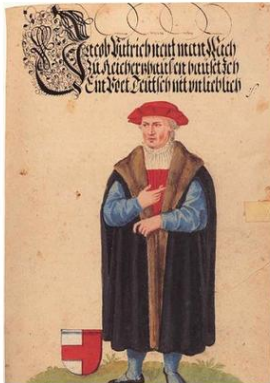 Jacob Putrich nent man Mich
Zu Reichertzhausen hauset Ich
Ein Poet Deutsch nit unlieblich